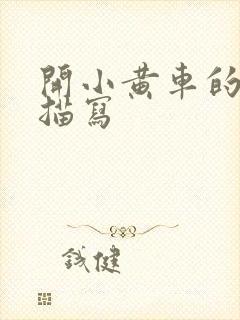 開小黃車的
描寫
錢健